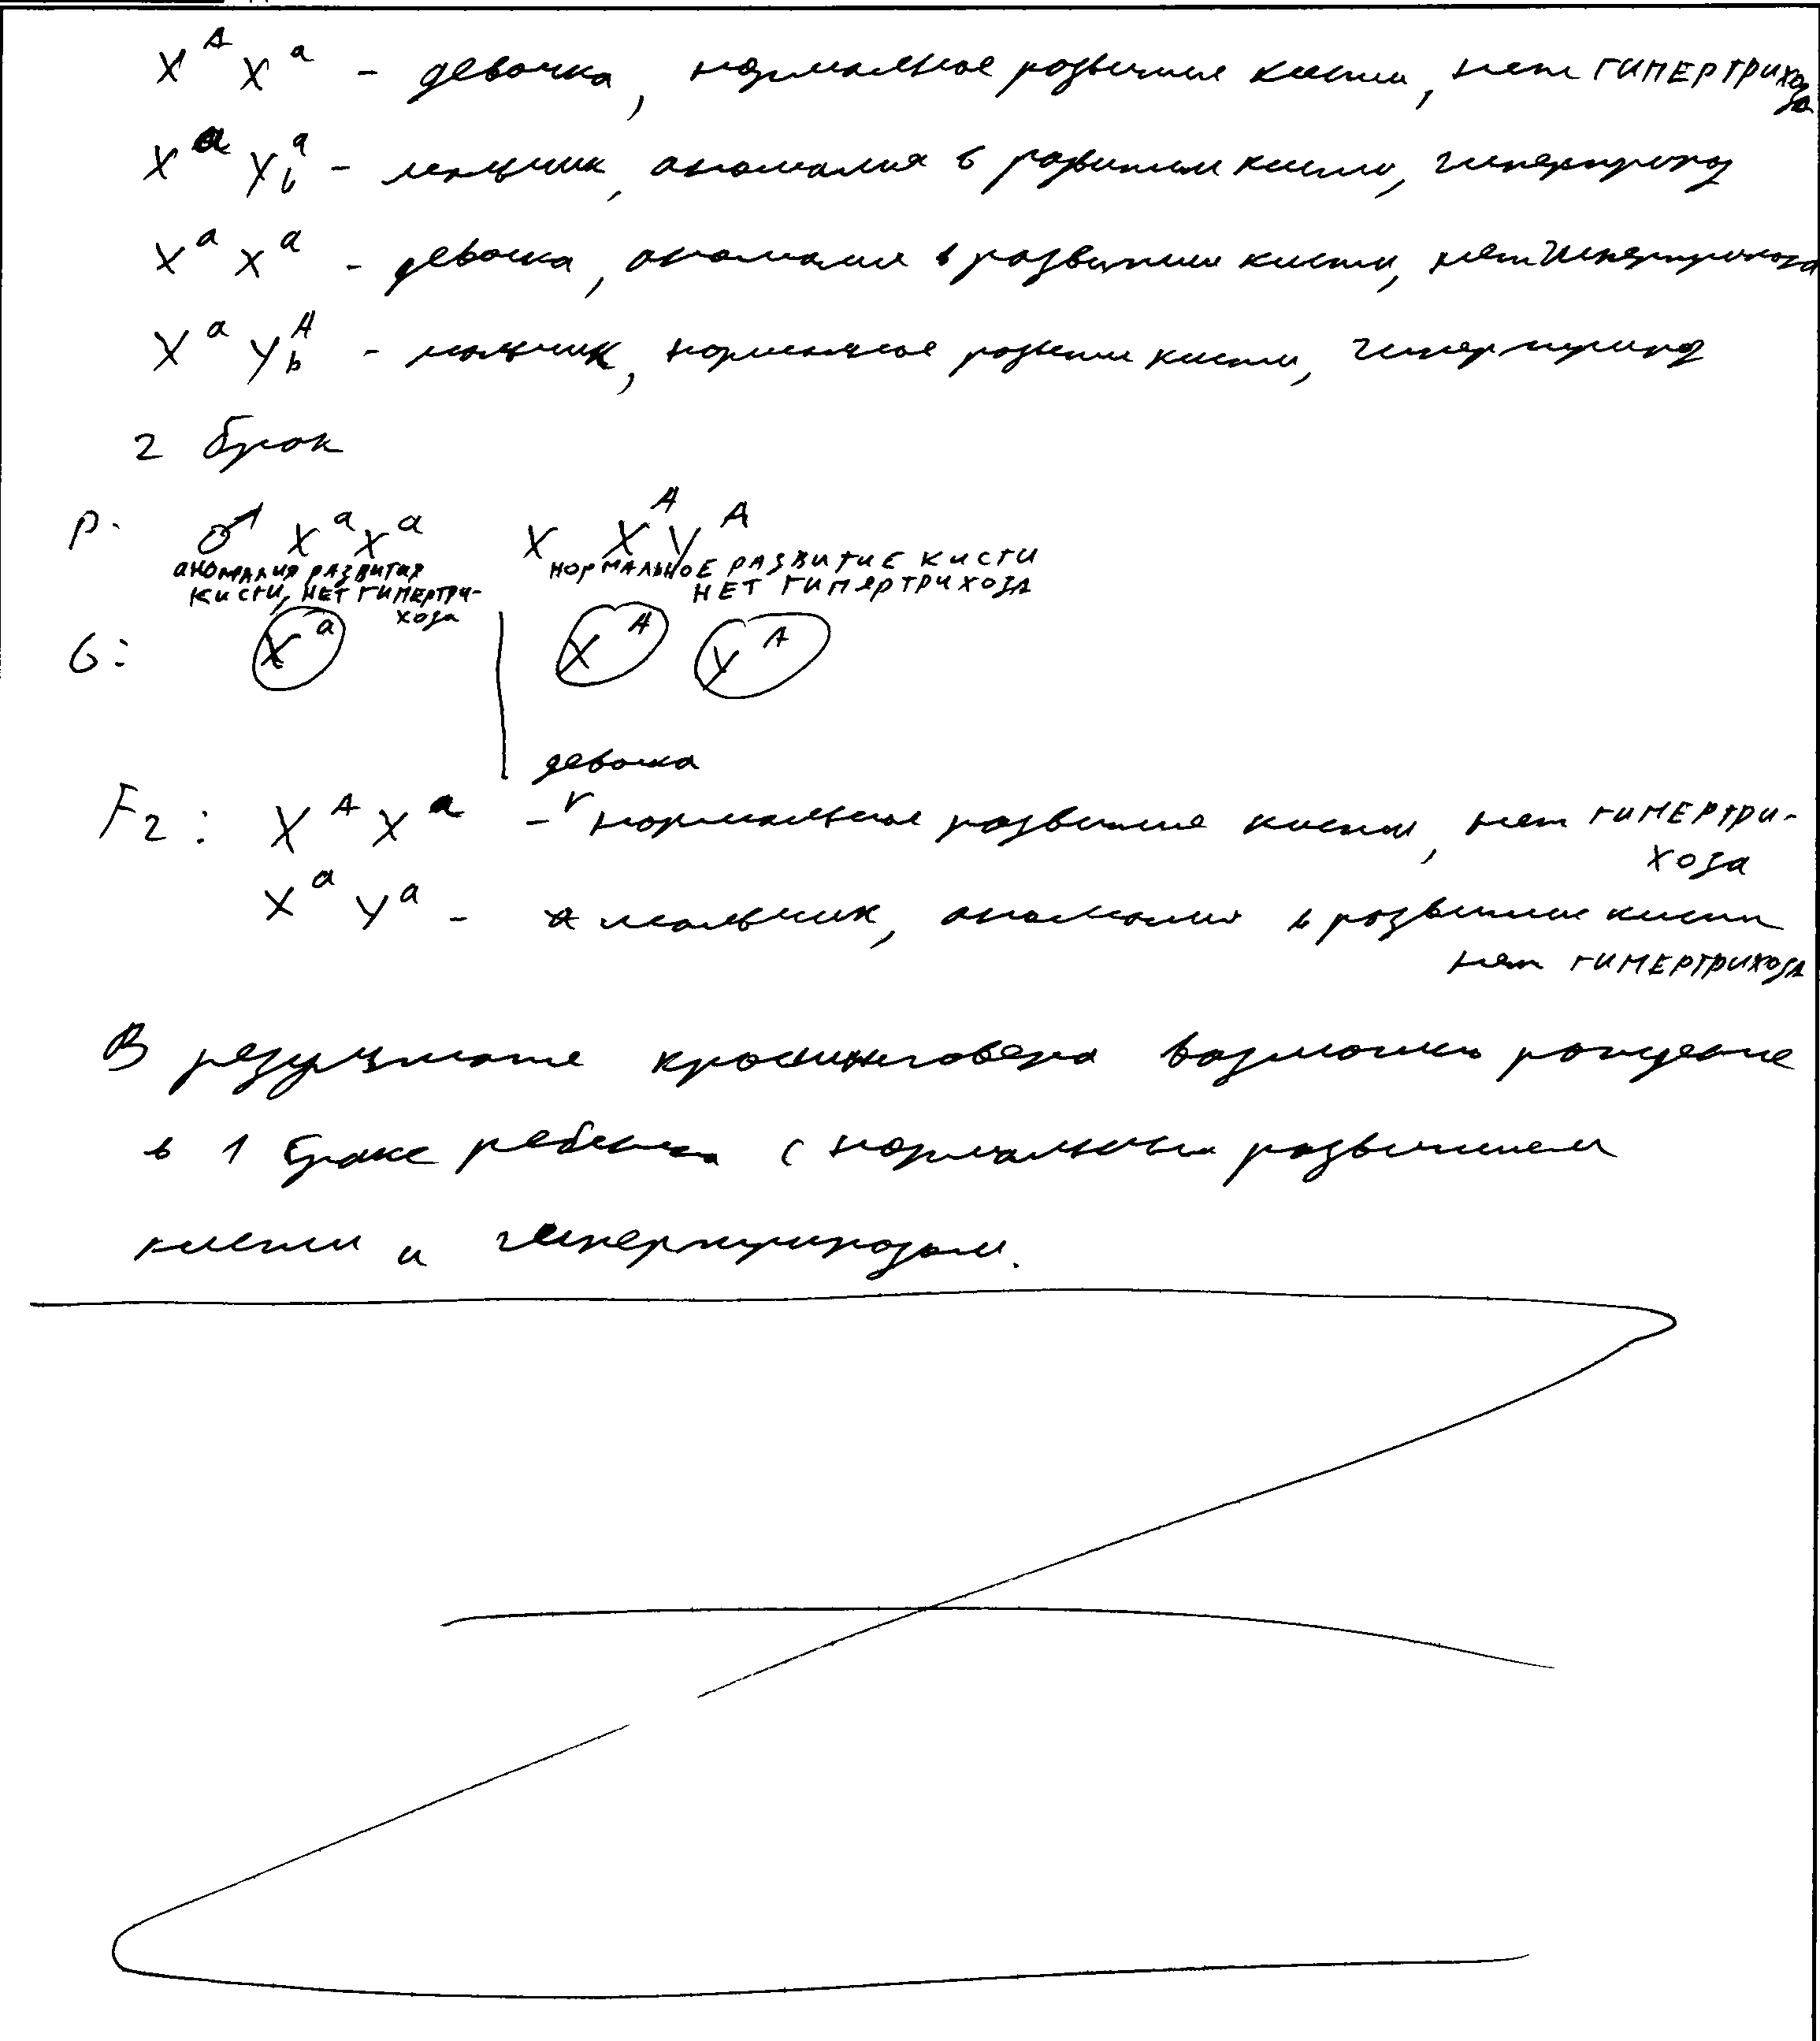 X^A X^a - девочка, нормальное развитие кисти, нет ГИПЕРТРИХОЗА
X^a Y_b^a - мальчик, аномалия в развитии кисти, гипертрихоз
X^a X^a - девочка, аномалия в развитии кисти, нет гипертрихоза
X^a Y_b^A - мальчик, нормальное развитие кисти, гипертрихоз
2 брак
P. ♂ X^a X^a X X^A Y^A
АНОМАЛИЯ РАЗВИТИЯ КИСТИ, НЕТ ГИПЕРТРИ-
ХОЗА
НОРМАЛЬНОЕ РАЗВИТИЕ КИСТИ
НЕТ ГИПЕРТРИХОЗА
G: X^a X^A Y^A
девочка
F2: X^A X^a - нормальное развитие кисти, нет ГИПЕРТРИ-
ХОЗА
X^a Y^a - мальчик, аномалия в развитии кисти
нет ГИПЕРТРИХОЗА
В результате кроссинговера возможно рождение
в 1 браке ребенка с нормальным развитием
кисти и гипертрихозом.